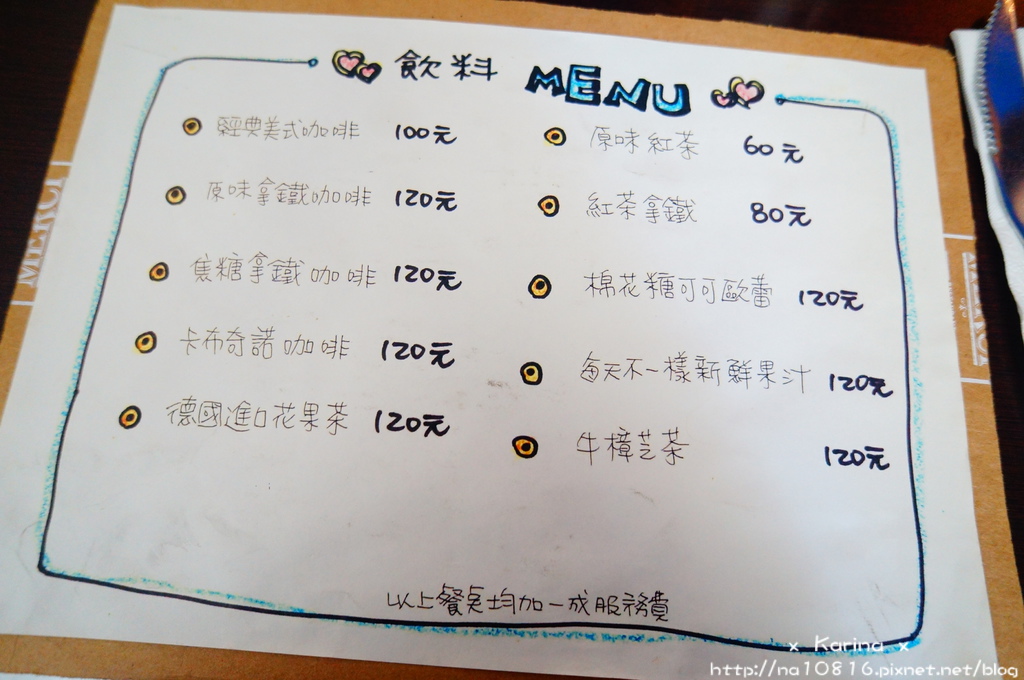 飲料 MENU
經典美式咖啡 100元
原味拿鐵咖啡 120元
焦糖拿鐵咖啡 120元
卡布奇諾咖啡 120元
德國進口花果茶 120元
原味紅茶 60元
紅茶拿鐵 80元
棉花糖可可歐蕾 120元
每天不一樣新鮮果汁 120元
牛樟芝茶 120元
以上餐桌均加一成服務費
MERCI
x Karina x
http://na10816.pixnet.net/blog